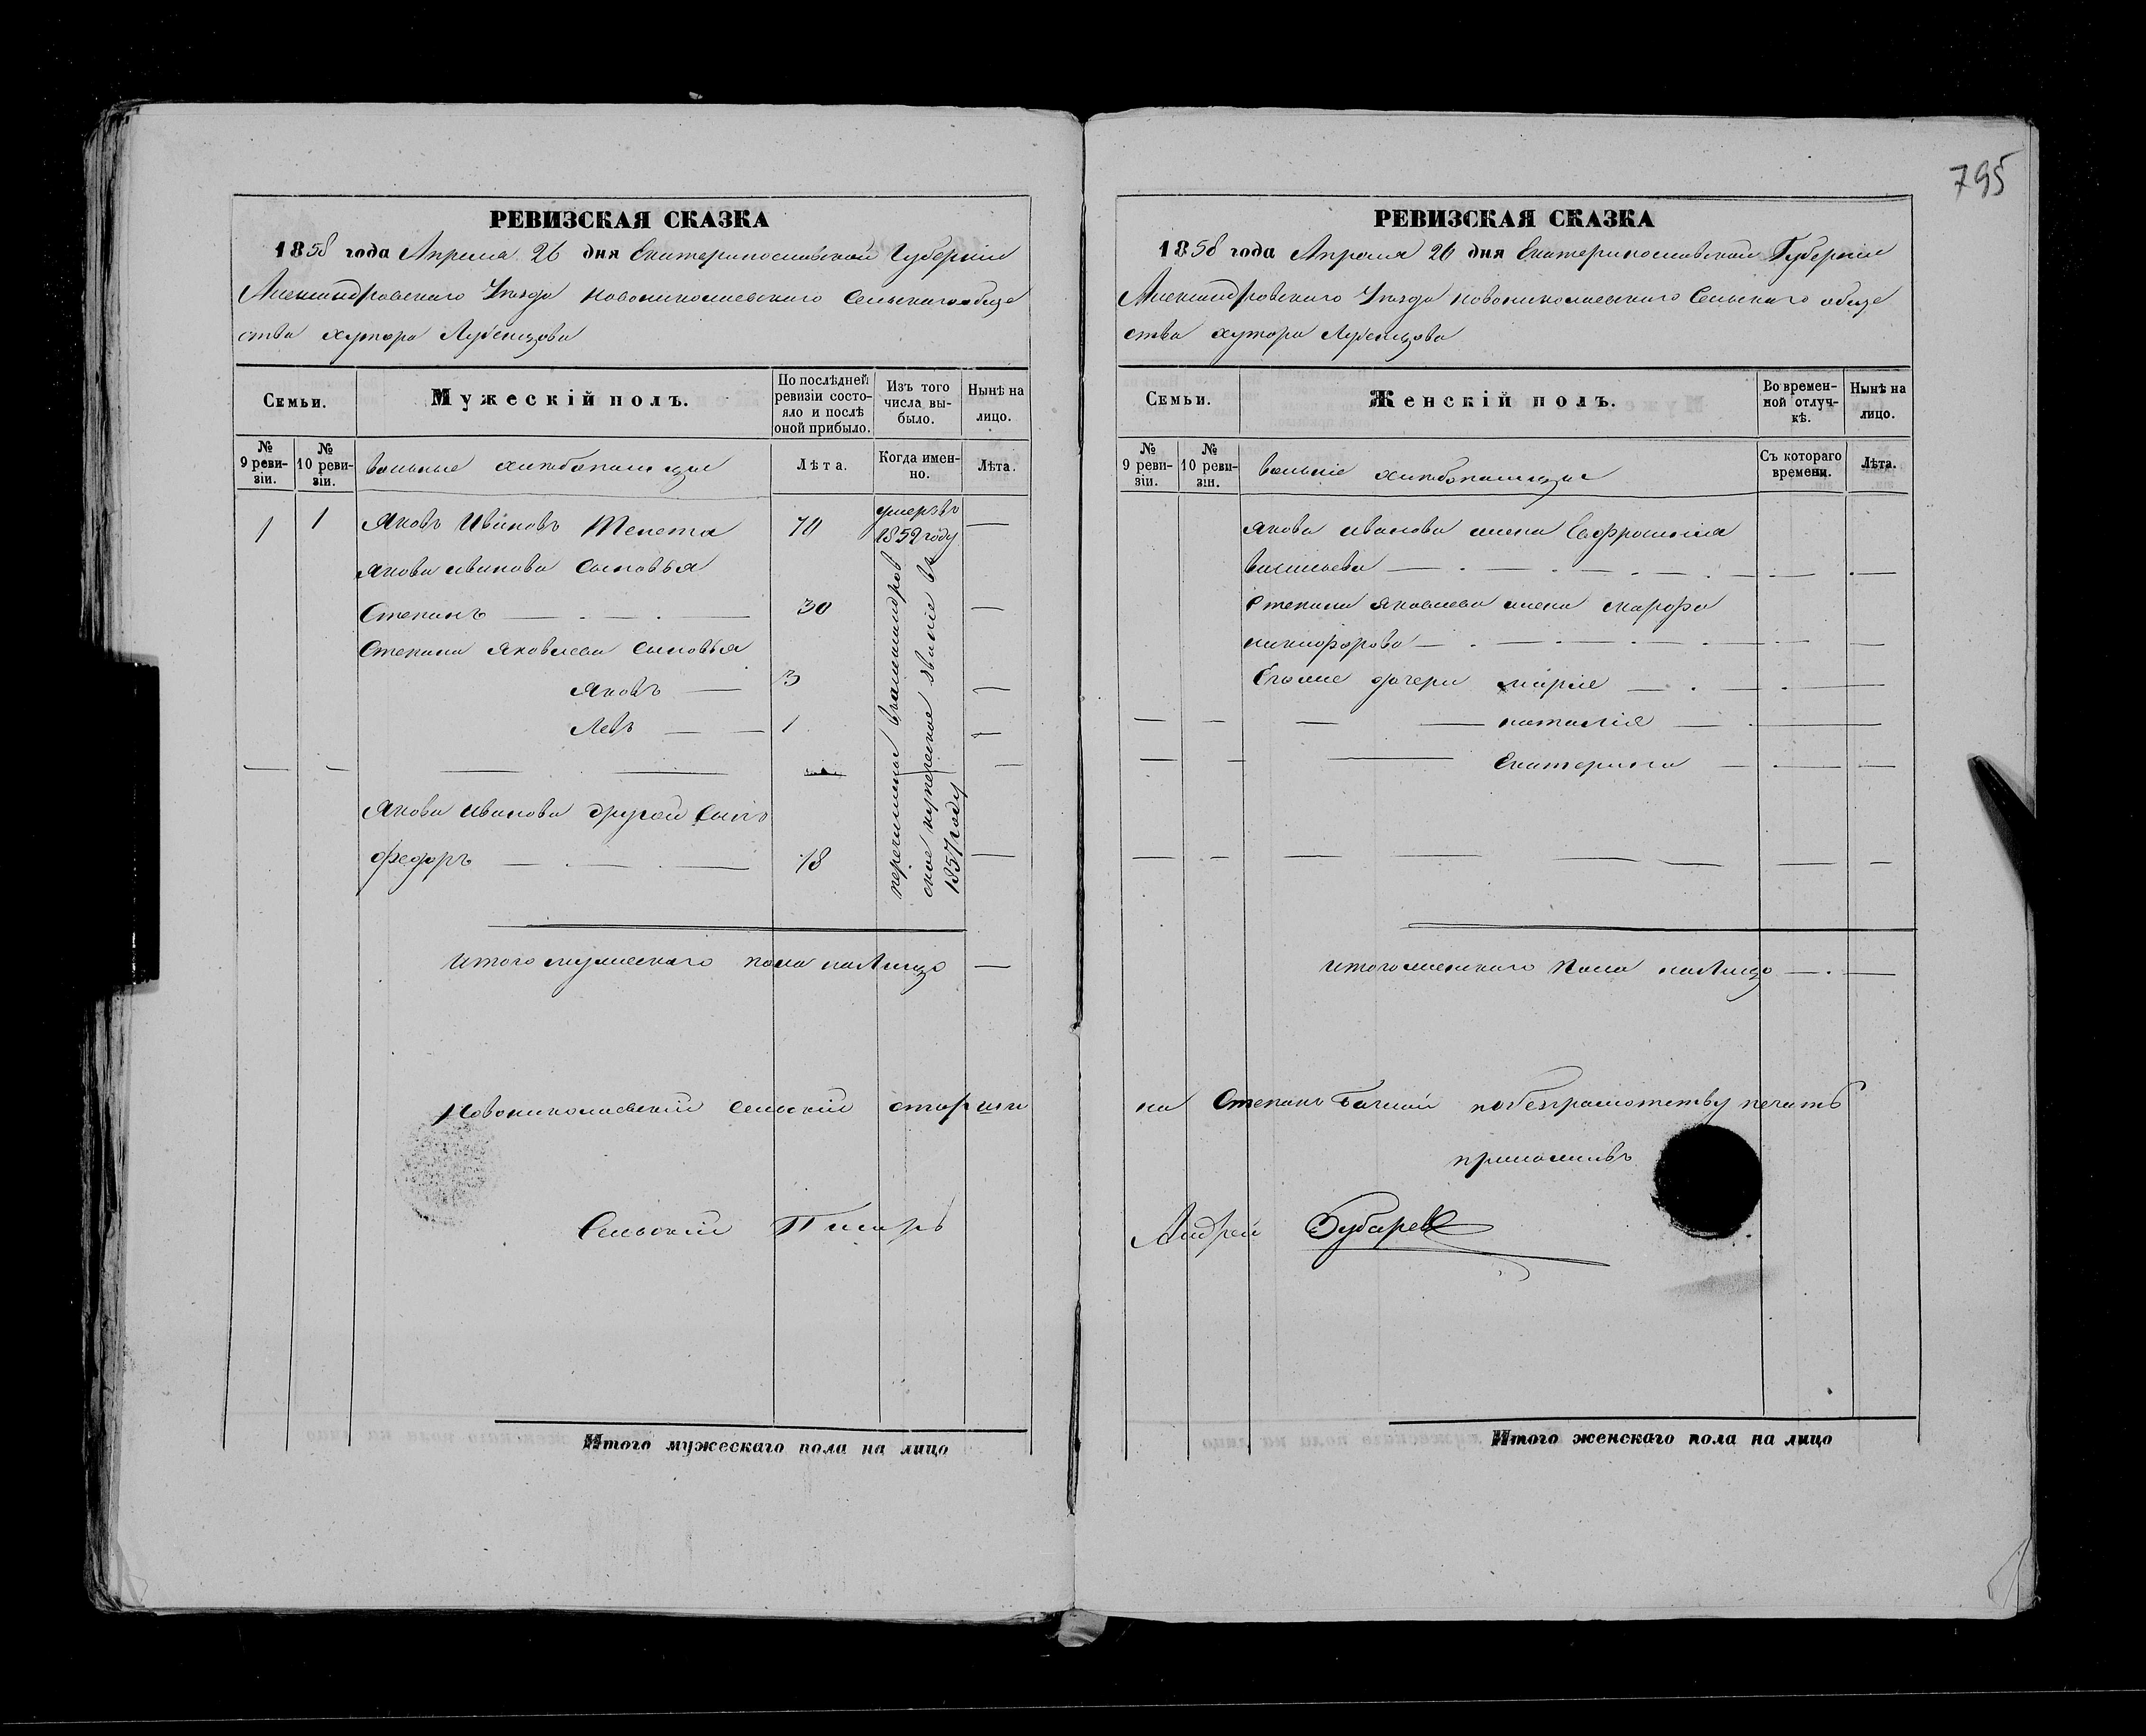 795
РЕВИЗСКАЯ СКАЗКА
1858 года Апреля 26 дня Екатеринославской Губернии
Александровскаго Уезда Новониколаевскаго Сельскаго обще
ства хутора Лубенцова
Семьи.
Мужескій полъ.
По послѣдней ревизіи состояло и послѣ оной прибыло.
Изъ того числа выбыло.
Нынѣ на лицо.
№ 9 ревизіи.
№ 10 ревизіи.
вольные хлебопашцы
Лѣта.
Когда именно.
Лѣта.
1 1 Яковъ Ивановъ Телета 70 умеръ въ 1852 году —
Якова иванова сыновья
Степанъ — . — . — 30 —
Степана Яковлева сыновья
Яковъ — 3 —
Левъ — — 1 —
Якова иванова другой сынъ
федоръ — . — . — 18 —
перечислены в александров
ское купеческое звание въ
1857 году
итого мужескаго пола налицо —
Новониколаевскій сельскій старши
Сельскій Писарь
Итого мужескаго пола на лицо
РЕВИЗСКАЯ СКАЗКА
1858 года Апреля 26 дня Екатеринославской Губернии
Александровскаго Уезда Новониколаевскаго Сельскаго обще
ства хутора Лубенцова
Семьи.
Женскій полъ.
Во временной отлучкѣ.
Нынѣ на лицо.
№ 9 ревизіи.
№ 10 ревизіи.
вольніе хлебопашцы
Съ котораго времени.
Лѣта.
Якова иванова жена Евфросинія
васильева
Степана Яковлева жена марфа
никифорова
Егоже дочери марие
наталія
Екатерина
итого женскаго пола налицо — . —
на Степанъ побезграмотству печать
приложилъ
Андрей Зубарев
Итого женскаго пола на лицо